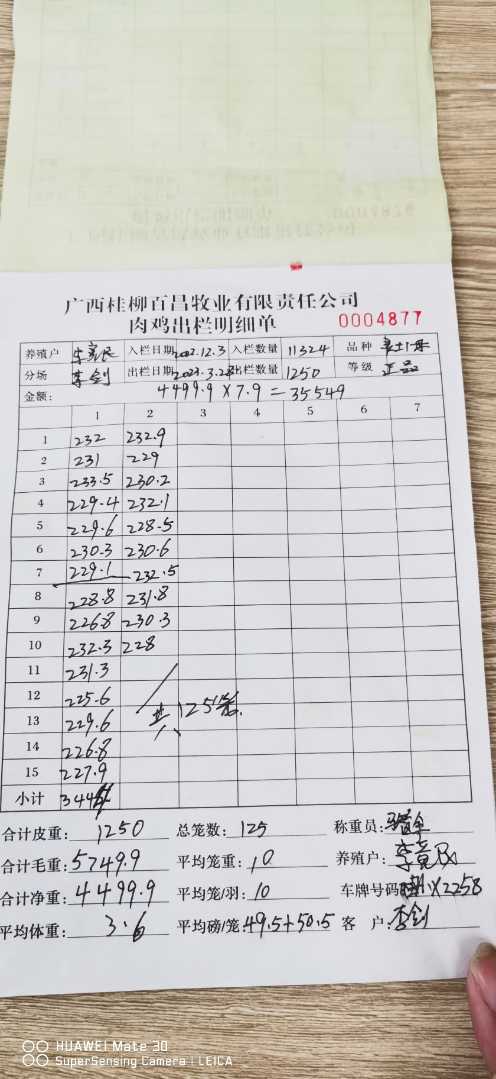 广西桂柳百昌牧业有限责任公司
肉鸡出栏明细单 0004877
养殖户 李亮民 入栏日期 2022.12.3 入栏数量 11324 品种
分场 李剑 出栏日期 2023.3.28 出栏数量 1250 等级 正品
金额: 4499.9×7.9=35549
1 2 3 4 5 6 7
1 232 232.9
2 231 229
3 233.5 230.2
4 229.4 232.1
5 229.6 228.5
6 230.3 230.6
7 229.1 232.5
8 228.8 231.8
9 226.8 230.3
10 232.3 228
11 231.3
12 225.6
13 229.6 共125笼
14 226.8
15 227.9
小计 344
合计皮重: 1250 总笼数: 125 称重员:
合计毛重: 5749.9 平均笼重: 10 养殖户: 李亮民
合计净重: 4499.9 平均笼/羽: 10 车牌号码 X2258
平均体重: 3.6 平均磅/笼: 49.5+50.5 客 户: 李剑
HUAWEI Mate 30
SuperSensing Camera | LEICA